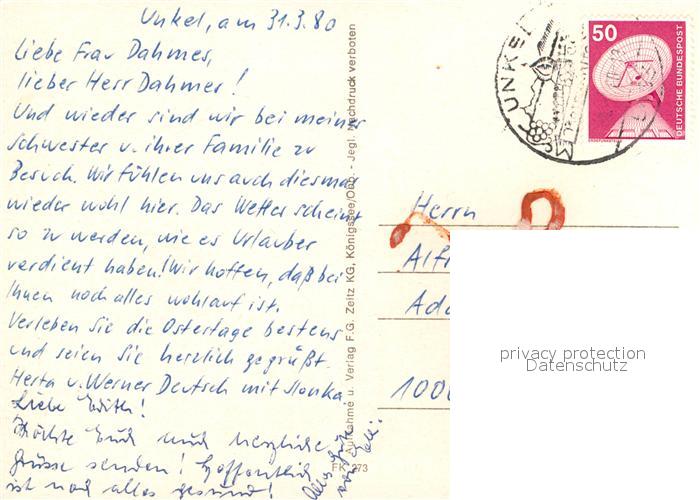 Unkel, am 31.3.80
Liebe Frau Dahmer,
lieber Herr Dahmer!
Und wieder sind wir bei meiner
Schwester u. ihrer Familie zu
Besuch. Wir fühlen uns auch diesmal
wieder wohl hier. Das Wetter scheint
so zu werden, wie es Urlauber
verdient haben! Wir hoffen, daß bei
Ihnen noch alles wohlauf ist.
Verleben Sie die Ostertage bestens
und seien Sie herzlich gegrüßt.
Herta u. Werner Deutsch mit Monka
Liebe Edith!
Möchte Euch auch herzliche
Grüsse senden! Hoffentlich
ist noch alles gesund!
Alles Gute
von
Aufnahme u. Verlag F.G. Zeitz KG, Königssee/Obb. - Jegl. Nachdruck verboten
FK 273
UNKEL
50
DEUTSCHE BUNDESPOST
ERDEFUNKSTELLE
Herrn
Alf
Ad
1000
privacy protection
Datenschutz